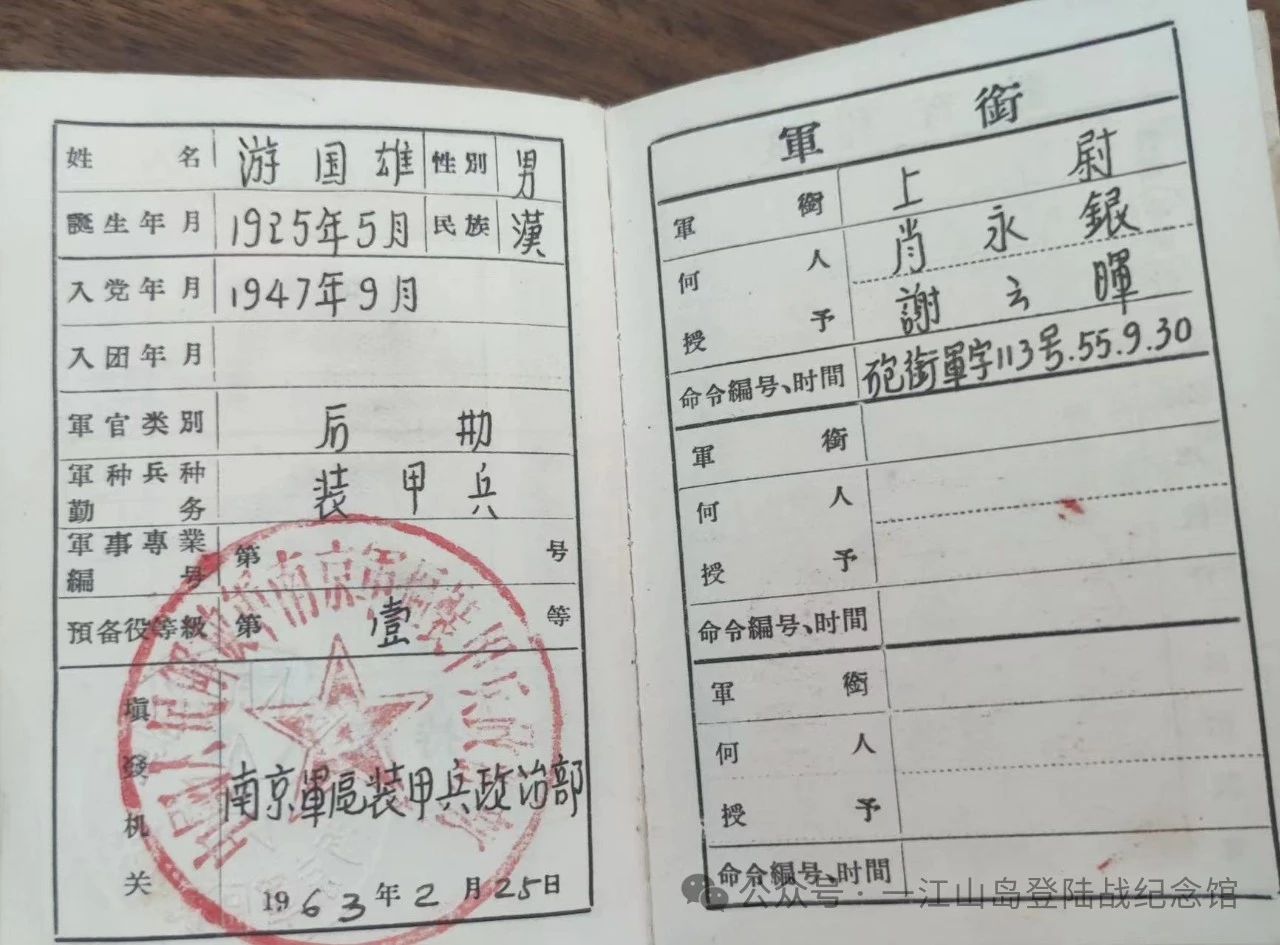 姓名 游国雄 性別 男
誕生年月 1925年5月 民族 漢
入党年月 1947年9月
入团年月
軍官类別 后勤
軍种兵种勤务 装甲兵
軍事專業編号 第 号
預备役等級 第壹等
填發机关
南京軍區装甲兵政治部
1963年2月25日
軍銜
軍銜 上尉
何人授予 肖永銀
謝云暉
命令編号、时間 砲銜軍字113号.55.9.30
軍銜
何人
授予
命令編号、时間
軍銜
何人
授予
命令編号、时間
公众号·一江山岛登陆战纪念馆